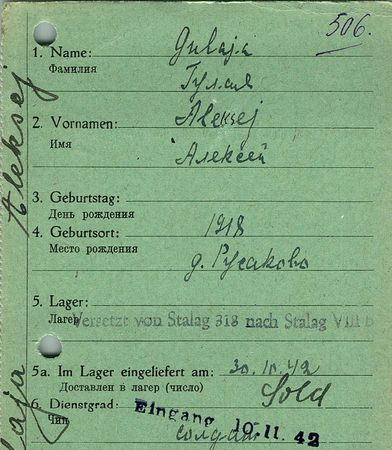 506.
1. Name: Gulaja
Фамилия Гулая
2. Vornamen: Aleksej
Имя Алексей
3. Geburtstag:
День рождения
4. Geburtsort: 1918
Место рождения д. Русаково
5. Lager:
Лагерь Versetzt von Stalag 318 nach Stalag VIII B
5a. Im Lager eingeliefert am: 30.10.42
Доставлен в лагерь (число)
6. Dienstgrad: Sold
Чин солдат
Eingang 10.11.42
Aleksej